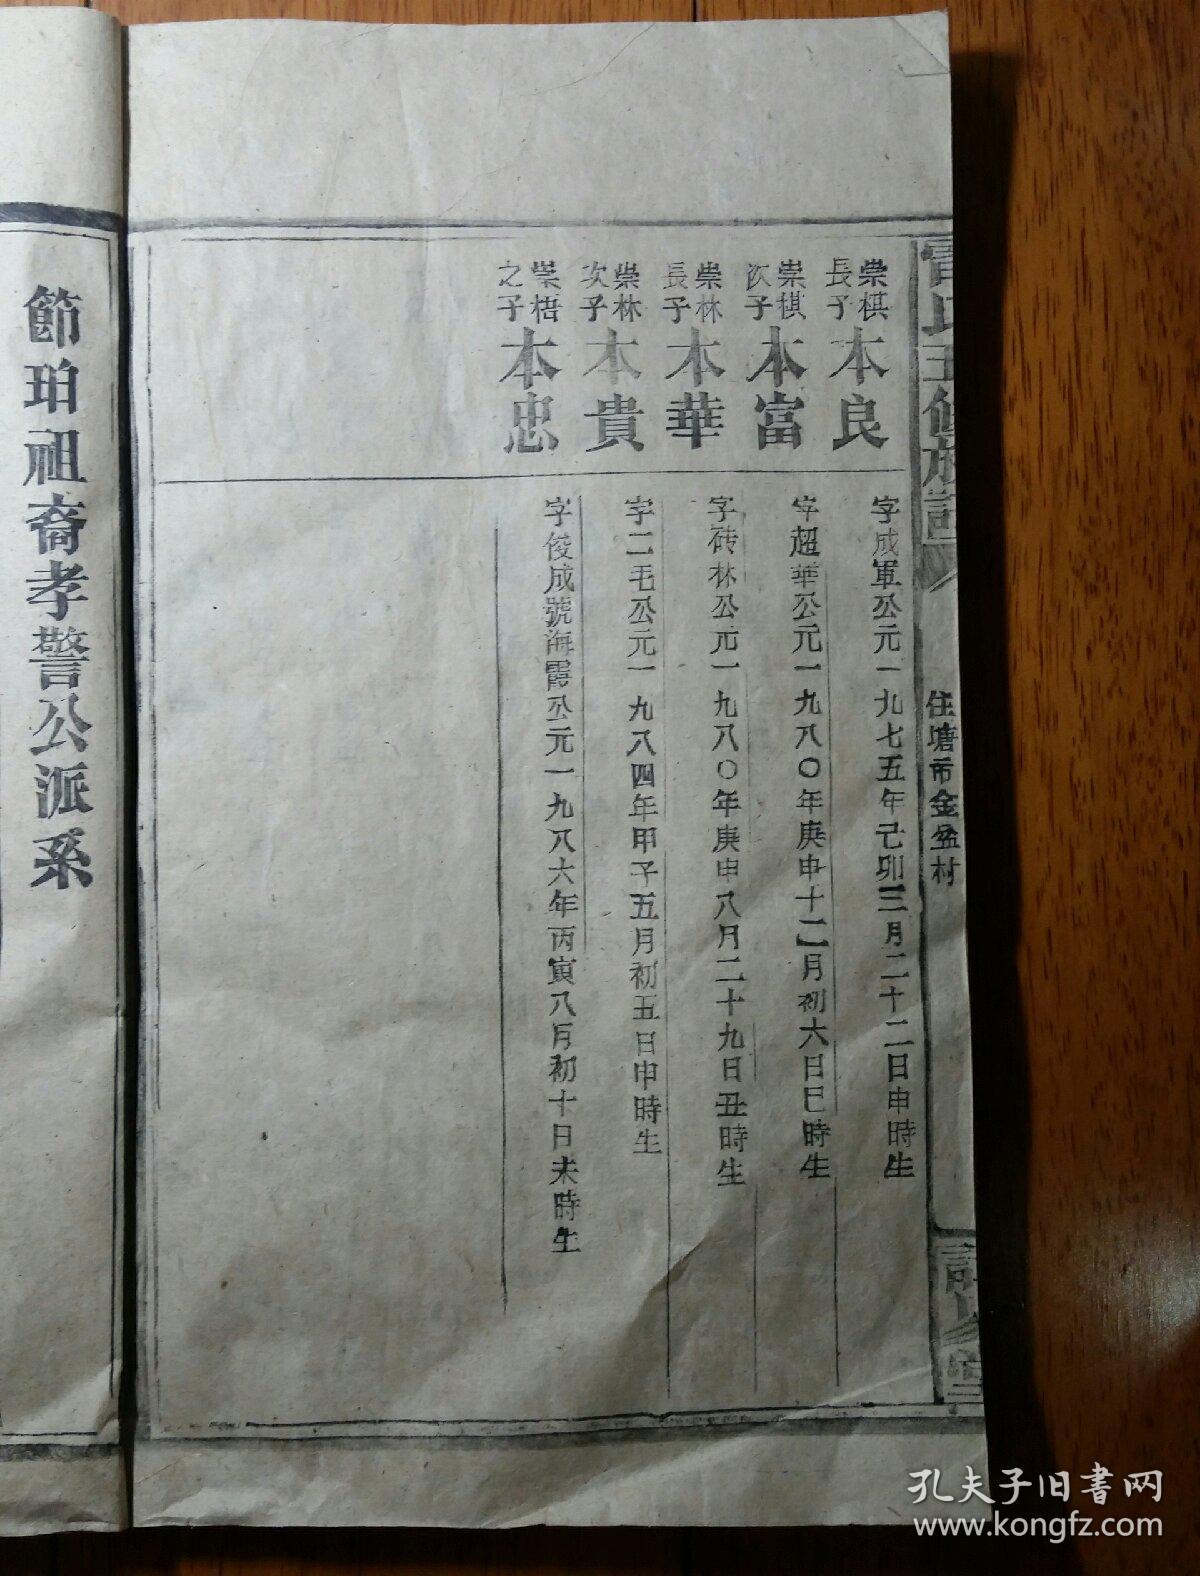 住塘市金盆村
崇棋
長子
本良
字成軍公元一九七五年己卯三月二十二日申時生
崇棋
次子
本富
字超華公元一九八〇年庚申十二月初六日巳時生
崇林
長子
本華
字砖林公元一九八〇年庚申八月二十九日丑時生
崇林
次子
本貴
字二毛公元一九八四年甲子五月初五日申時生
崇梧
之子
本忠
字俊成號海霞公元一九八六年丙寅八月初十日未時生
節珀祖裔孝警公派系
孔夫子旧书网
www.kongfz.com